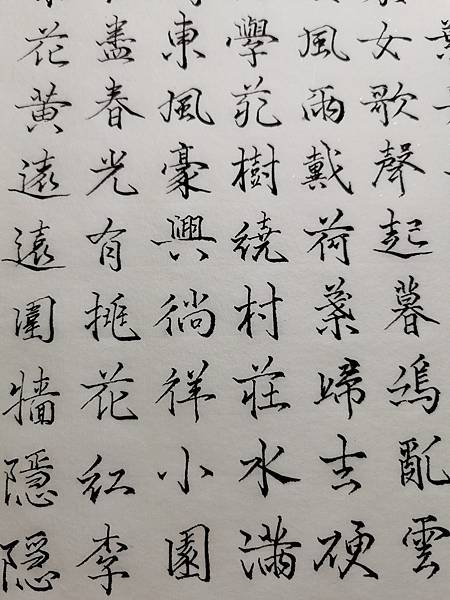 女歌聲起暮鴉亂雲
風雨戴荷葉歸去硬
學苑樹繞村莊水滿
東風豪興徜祥小園
盡春光有桃花紅李
花黃遠遠圍牆隱隱